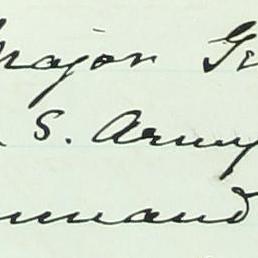 Major Ge
S. Army
mmand